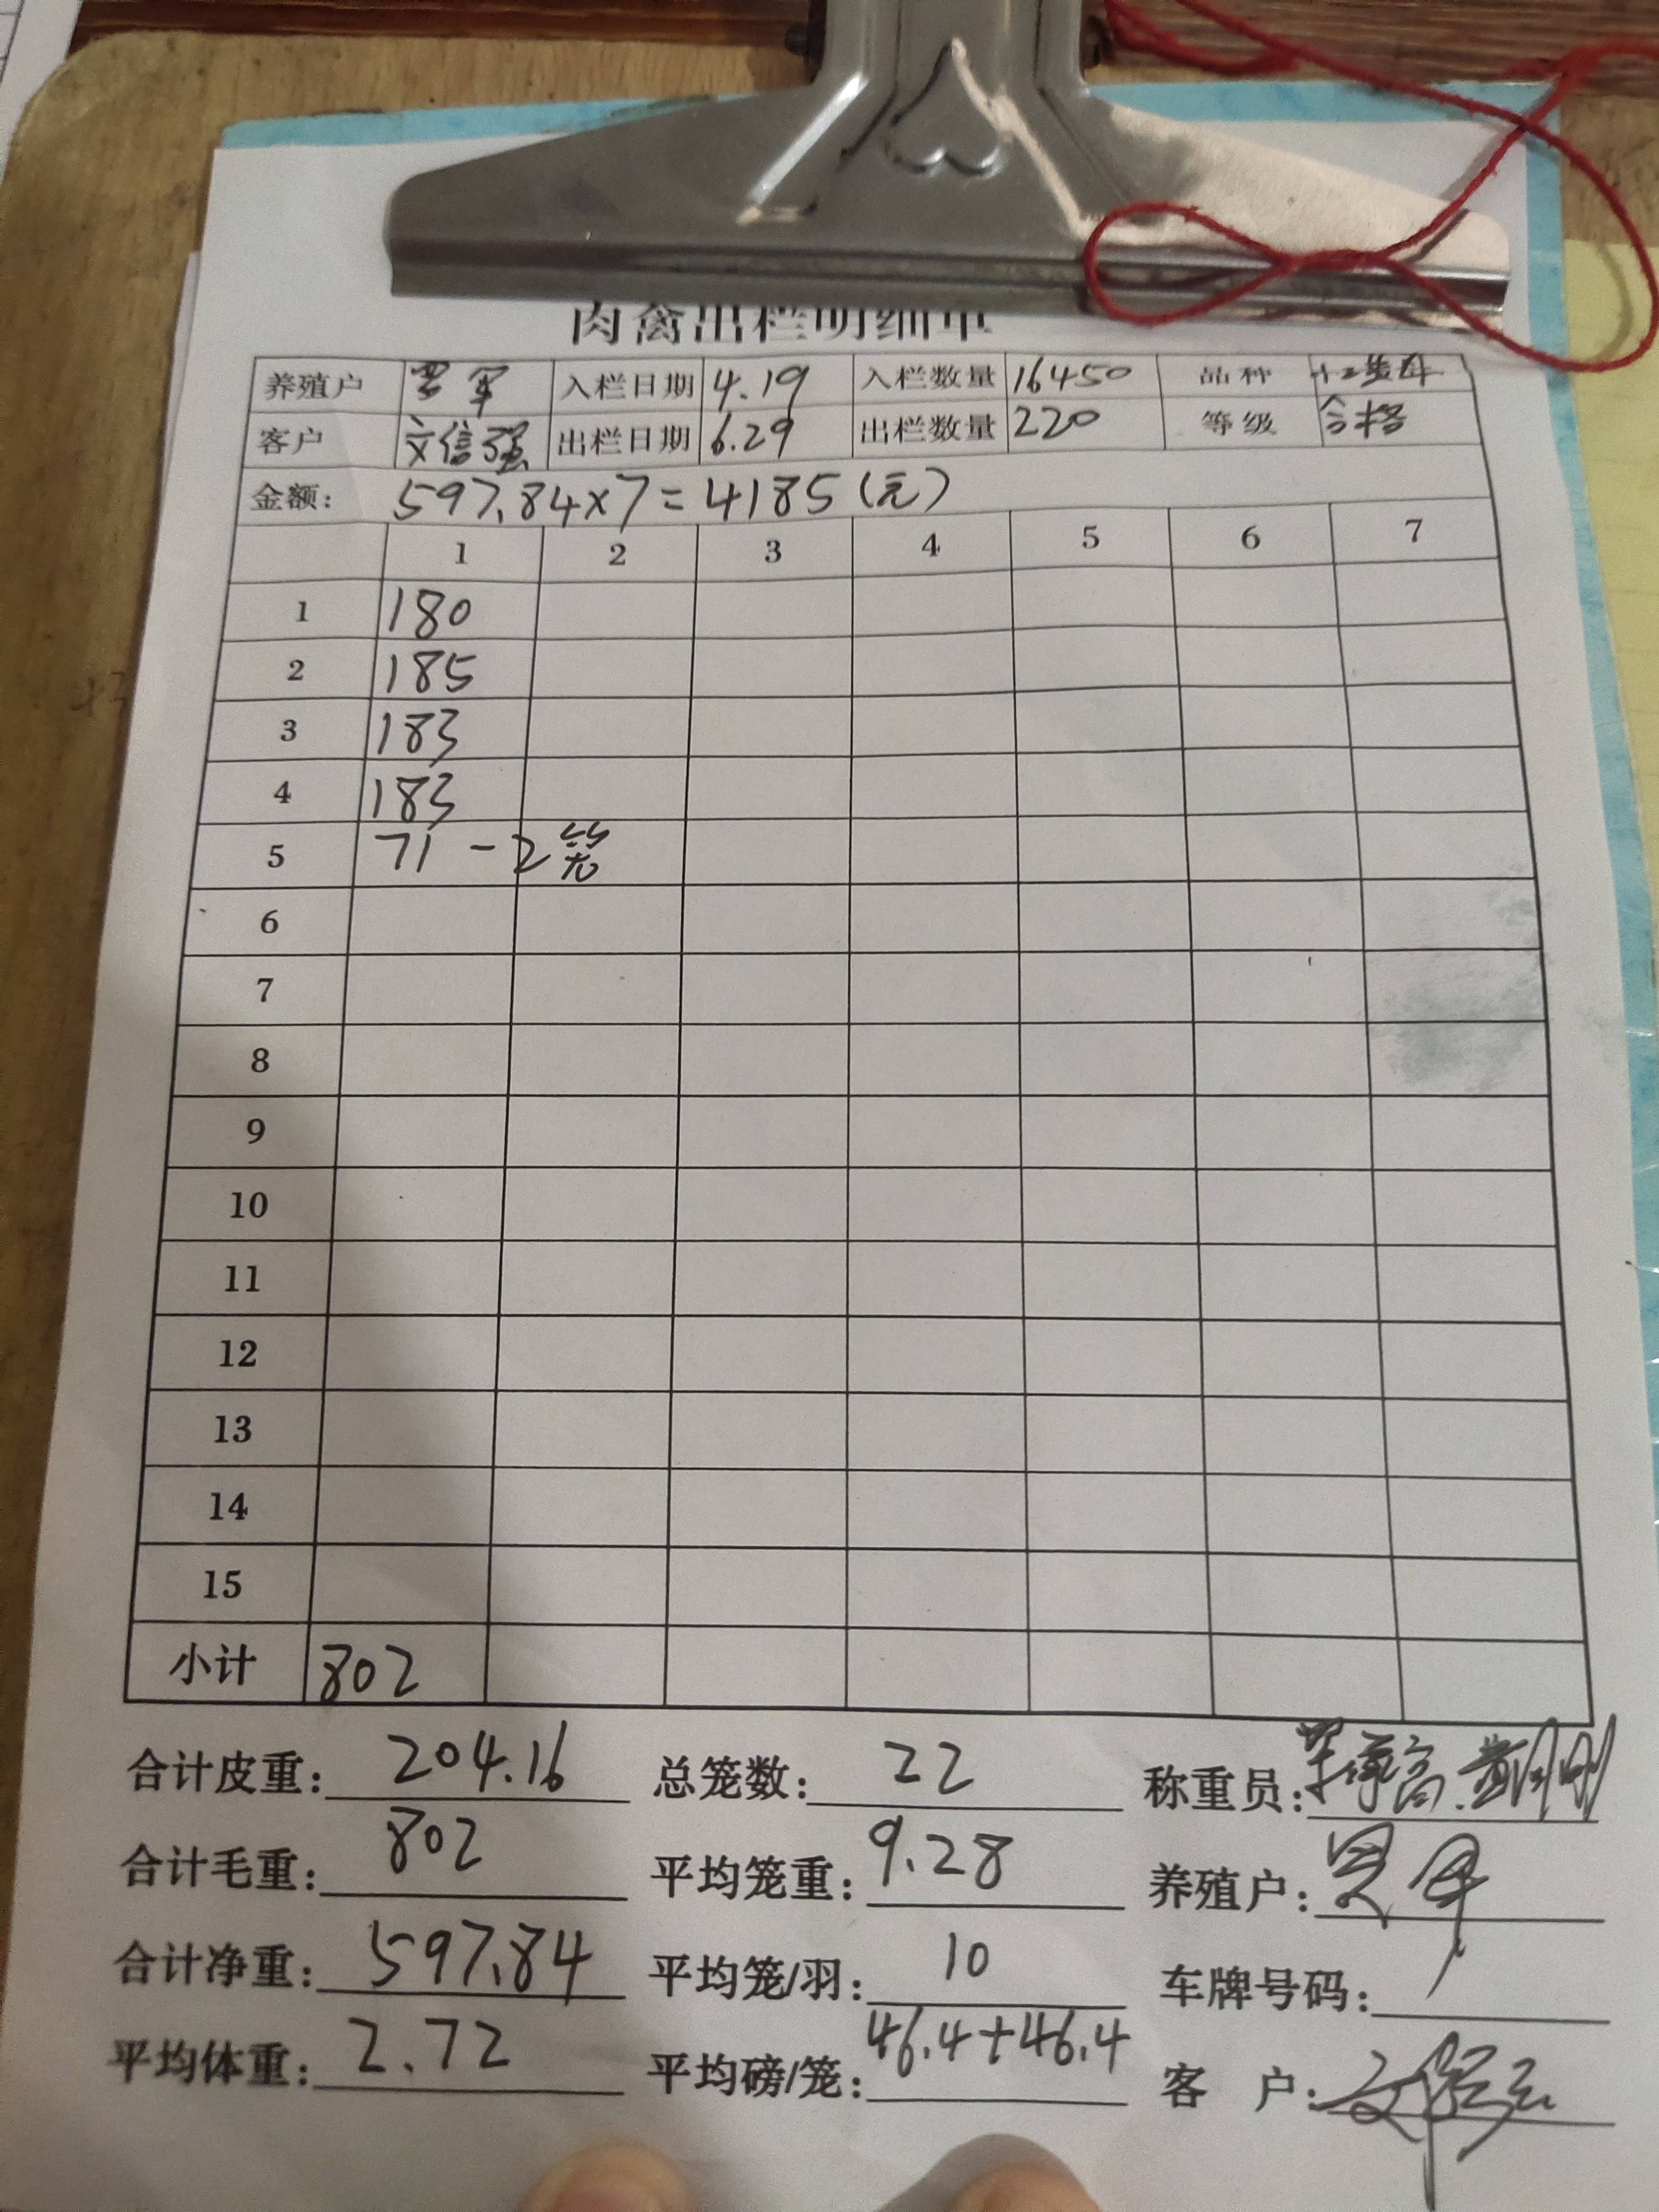 肉禽出栏明细单
养殖户 入栏日期 4.19 入栏数量 16450 品种
客户 文信强 出栏日期 6.29 出栏数量 220 等级 合格
金额: 597.84×7=4185(元)
1 2 3 4 5 6 7
1 180
2 185
3 183
4 183
5 71 -2笼
6
7
8
9
10
11
12
13
14
15
小计 802
合计皮重: 204.16 总笼数: 22 称重员:
合计毛重: 802 平均笼重: 9.28 养殖户:
合计净重: 597.84 平均笼/羽: 10 车牌号码: /
平均体重: 2.72 平均磅/笼: 46.4+46.4 客 户: